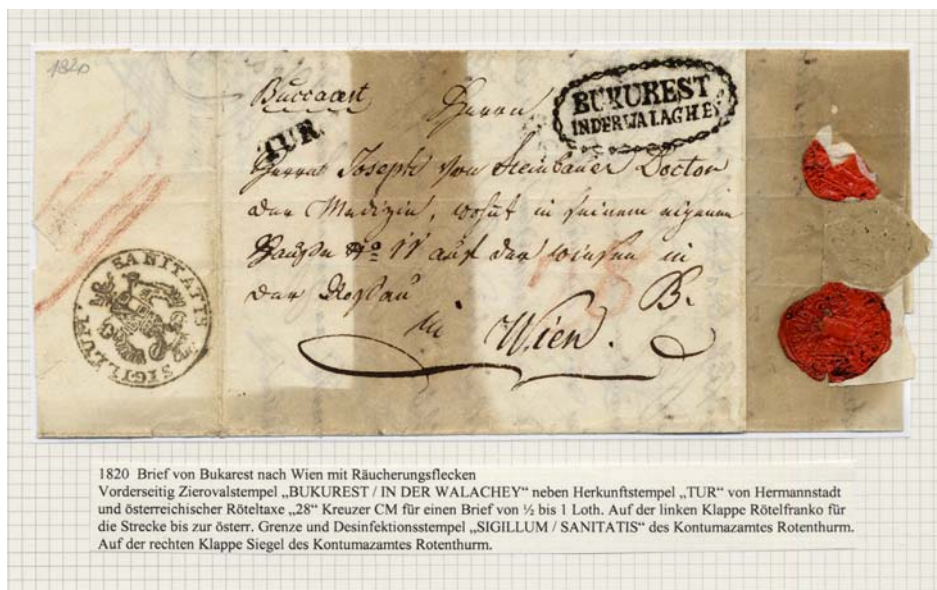 1820
Buccarest Herrn
BUKUREST
IN DER WALACHEY
TUR.
Herrn Joseph von Steinbauer Doctor
der Medizin, wohnt in seinem eigenen
Hause No 11 auf der Wiesen in
der Roßau B.
in Wien.
28
SIGILLUM SANITATIS
1820 Brief von Bukarest nach Wien mit Räucherungsflecken
Vorderseitig Zierovalstempel „BUKUREST / IN DER WALACHEY“ neben Herkunftstempel „TUR“ von Hermannstadt
und österreichischer Röteltaxe „28“ Kreuzer CM für einen Brief von ½ bis 1 Loth. Auf der linken Klappe Rötelfranko für
die Strecke bis zur österr. Grenze und Desinfektionsstempel „SIGILLUM / SANITATIS“ des Kontumazamtes Rotenthurm.
Auf der rechten Klappe Siegel des Kontumazamtes Rotenthurm.